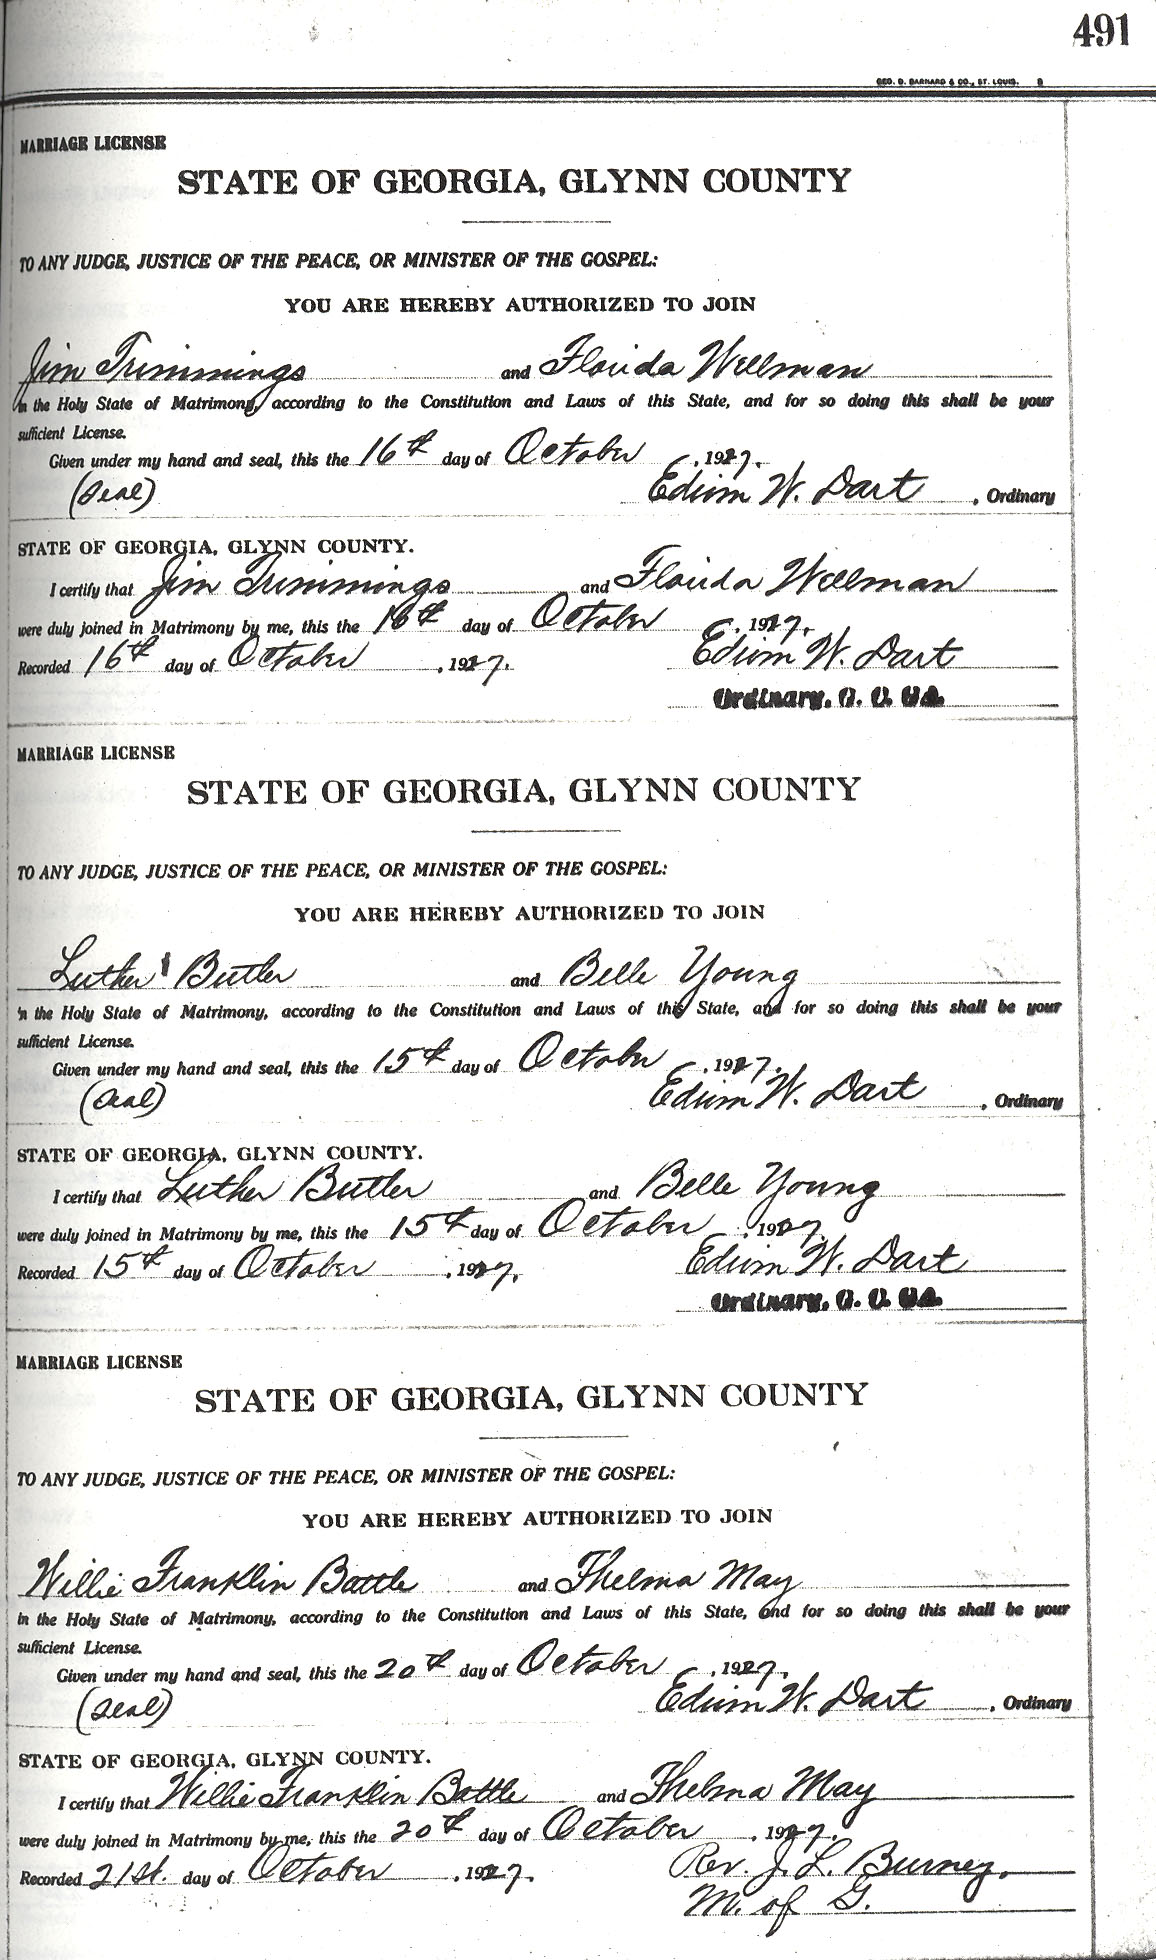 491
GEO. D. BARNARD & CO., ST. LOUIS. B
MARRIAGE LICENSE
STATE OF GEORGIA, GLYNN COUNTY
TO ANY JUDGE, JUSTICE OF THE PEACE, OR MINISTER OF THE GOSPEL:
YOU ARE HEREBY AUTHORIZED TO JOIN
Jim Trimmings and Florida Wellman
in the Holy State of Matrimony, according to the Constitution and Laws of this State, and for so doing this shall be your
sufficient License.
Given under my hand and seal, this the 16th day of October, 1927.
(Seal) Edwin W. Dart, Ordinary
STATE OF GEORGIA, GLYNN COUNTY.
I certify that Jim Trimmings and Florida Wellman
were duly joined in Matrimony by me, this the 16th day of October, 1927.
Recorded 16th day of October, 1927. Edwin W. Dart
Ordinary, G. C. GA.
MARRIAGE LICENSE
STATE OF GEORGIA, GLYNN COUNTY
TO ANY JUDGE, JUSTICE OF THE PEACE, OR MINISTER OF THE GOSPEL:
YOU ARE HEREBY AUTHORIZED TO JOIN
Luther Butler and Belle Young
in the Holy State of Matrimony, according to the Constitution and Laws of this State, and for so doing this shall be your
sufficient License.
Given under my hand and seal, this the 15th day of October, 1927.
(Seal) Edwin W. Dart, Ordinary
STATE OF GEORGIA, GLYNN COUNTY.
I certify that Luther Butler and Belle Young
were duly joined in Matrimony by me, this the 15th day of October, 1927.
Recorded 15th day of October, 1927. Edwin W. Dart
Ordinary, G. C. GA.
MARRIAGE LICENSE
STATE OF GEORGIA, GLYNN COUNTY
TO ANY JUDGE, JUSTICE OF THE PEACE, OR MINISTER OF THE GOSPEL:
YOU ARE HEREBY AUTHORIZED TO JOIN
Willie Franklin Battle and Thelma May
in the Holy State of Matrimony, according to the Constitution and Laws of this State, and for so doing this shall be your
sufficient License.
Given under my hand and seal, this the 20th day of October, 1927.
(Seal) Edwin W. Dart, Ordinary
STATE OF GEORGIA, GLYNN COUNTY.
I certify that Willie Franklin Battle and Thelma May
were duly joined in Matrimony by me, this the 20th day of October, 1927.
Recorded 21st. day of October, 1927. Rev. J. L. Burney,
M. of G.